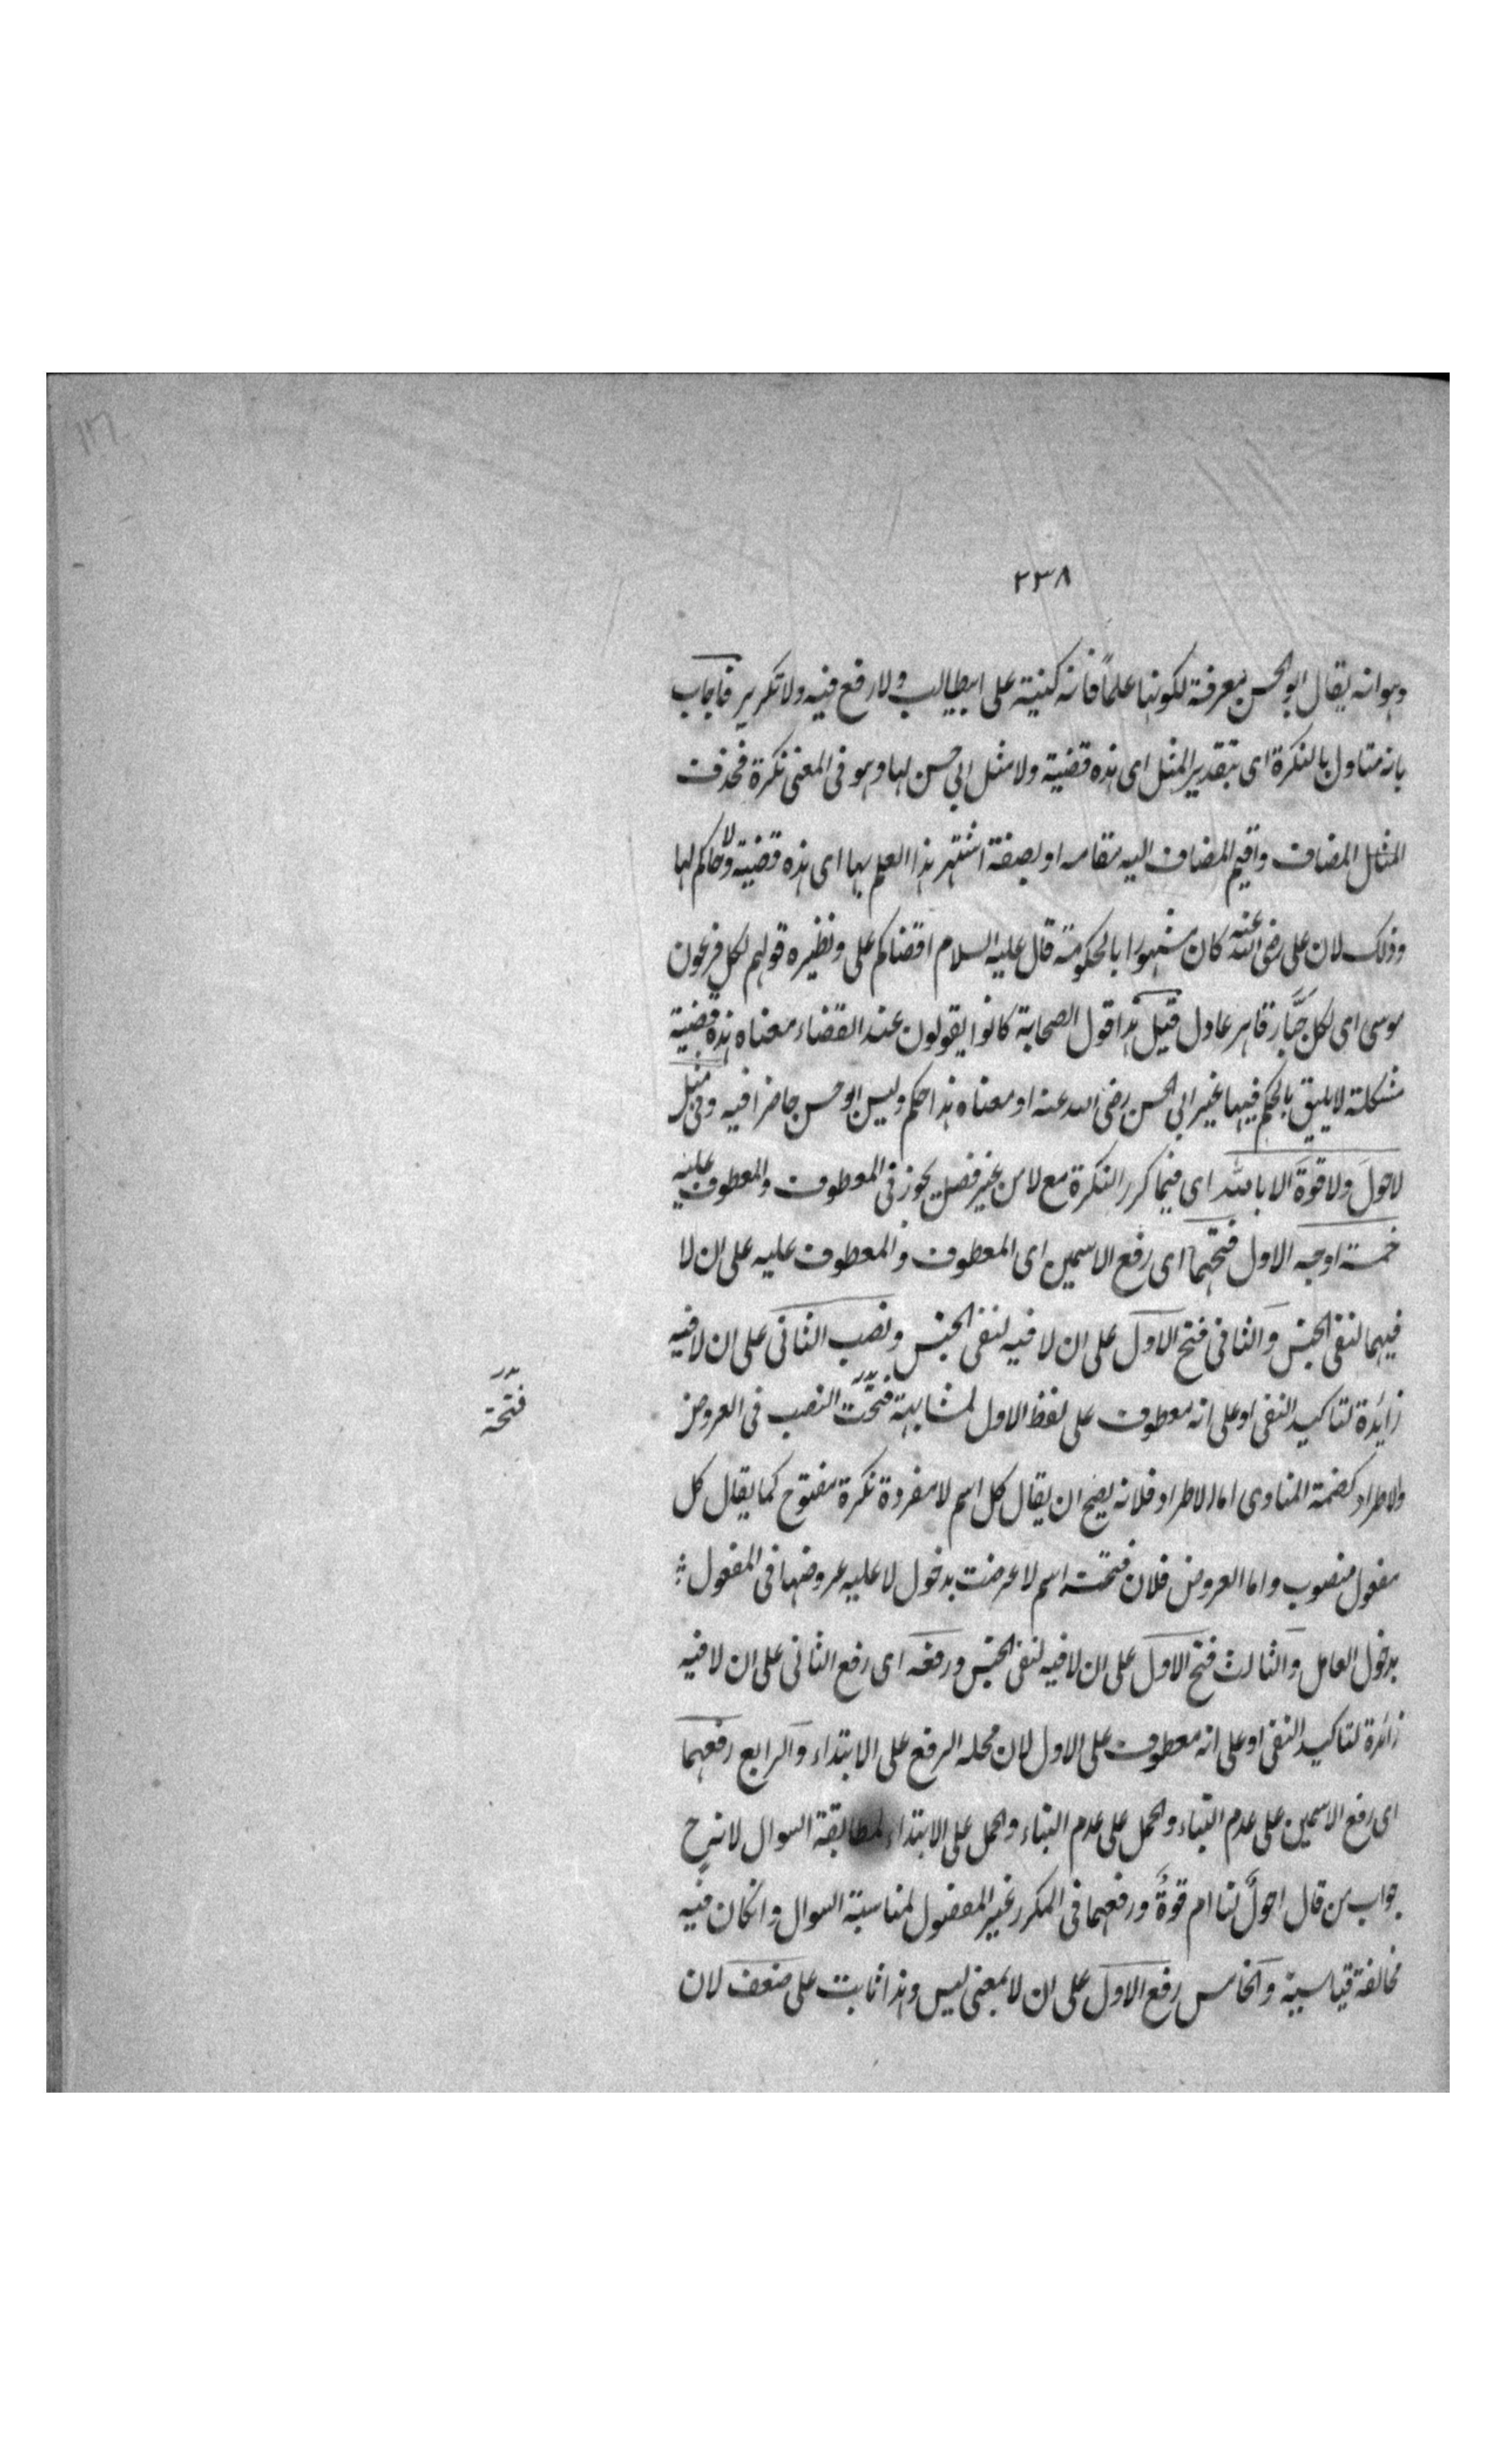 ٢٣٨
وهوانه يقال ابوالحسن معرفة لكونها علماً فانه كنية على ابيطالب ولا رفع فيه ولا تكرير فاجاب
بانه متاول بالنكرة اى بتقدير المثل اى هذه قضية ولا مثل ابي حسن لها وهو فى المعنى نكرة فحذف
المثل المضاف واقيم المضاف اليه مقامه او بصفة اشتهر هذا العلم بها اى هذه قضية ولا حاكم لها
وذلك لان على رضى الله عنه كان مشهورا بالحكومة قال عليه السلام اقضاكم على ونظيره قولهم لكل فرعون
موسى اى لكل جبّار قاهر عادل قيل هذا قول الصحابة كانوا يقولون عند القضاء معناه هذه قضية
مشكلة لا يليق بالحكم فيها غير ابى الحسن رضى الله عنه او معناه هذا حكم وليس ابو حسن حاضرا فيه وفى مثل
لا حولَ ولا قوةَ الا بالله اى فيما كرر النكرة مع لا من غير فصل يجوز فى المعطوف والمعطوف عليه
خمسة اوجه الاول فتحهما اى رفع الاسمين اى المعطوف والمعطوف عليه على ان لا
فيهما لنفى الجنس والثانى فتح الاول على ان لا فيه لنفى الجنس ونصب الثانى على ان لا فيه
زايدة لتاكيد النفى او على انه معطوف على لفظ الاول لمشابهة فتحت النصب فى العروض
فتحة
ولاطراد كضمة المنادى اما لاطراد فلانه يصح ان يقال كل اسم لا مفردة نكرة مفتوح كما يقال كل
مفعول منصوب واما العروض فلان فتحة اسم لا عرضت بدخول لا عليه عروضها فى المفعول
بدخول العامل والثالث فتح الاول على ان لا فيه لنفى الجنس ورفعه اى رفع الثانى على ان لا فيه
زائدة لتاكيد النفى او على انه معطوف على الاول لان محله الرفع على الابتداء والرابع رفعهما
اى رفع الاسمين على عدم البناء والحمل على عدم البناء والحمل على الابتداء لمطابقة السوال لانه ح
جواب من قال احولٌ لنا ام قوةٌ ورفعهما فى المكرر غير المفصول لمناسبة السوال وانكان فيه
مخالفة قياسية والخامس رفع الاول على ان لا بمعنى ليس وهذا ثابت على ضعف لان